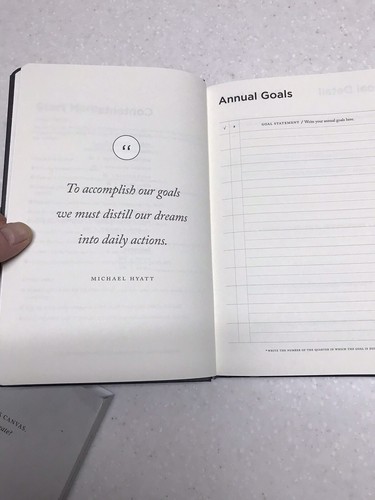 “
To accomplish our goals
we must distill our dreams
into daily actions.
MICHAEL HYATT
Annual Goals
GOAL STATEMENT / Write your annual goals here.
*WRITE THE NUMBER OF THE QUARTER IN WHICH THE GOAL IS
CANVAS